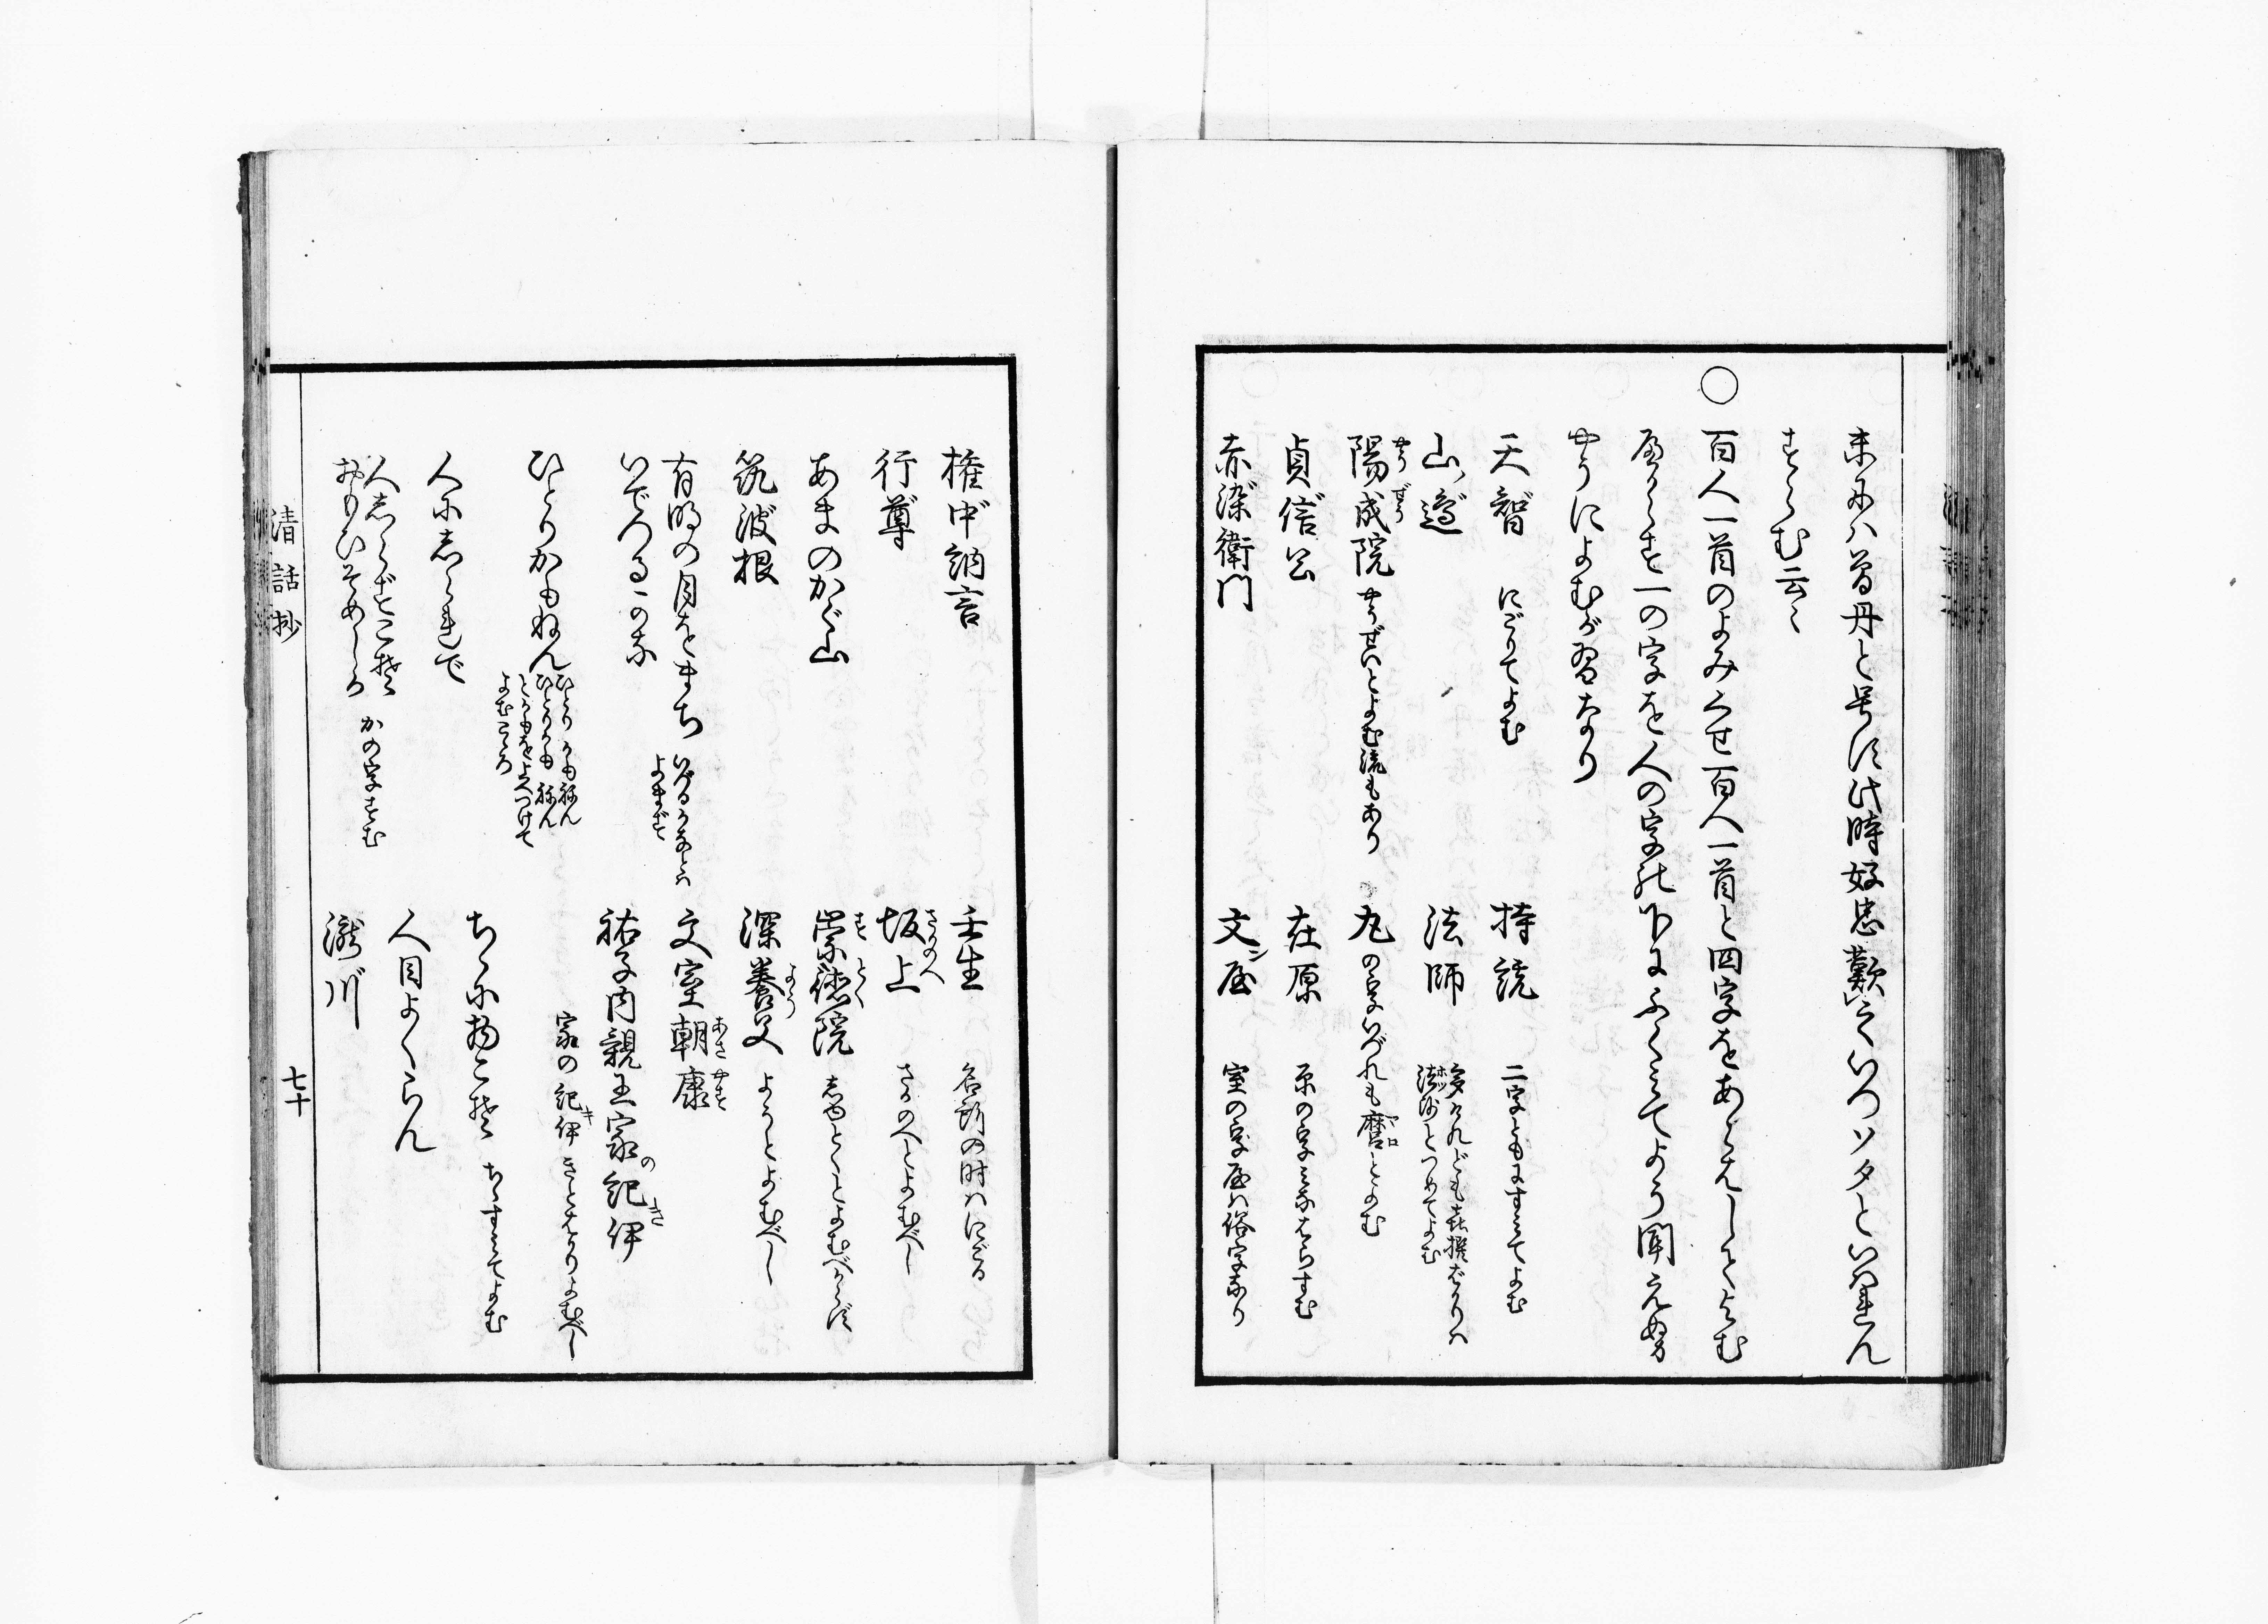 末にハ曽丹と号す此時好忠歎いていつソタといはれん
すらむ云々
○百人一首のよみくせ百人一首と四字をあらはしてよむ
一の字を人の字の下にふくみてよう聞えぬ
やうによむが習なり
天智 にごりてよむ
持統 二字ともにすみてよむ
山邊
法師 多けれども喜撰ばかりハ
法師とつめてよむ
陽成院 やうぜいとよむ流もあり
丸の字いづれも麿とよむ
貞信公
在原 原の字みなはらすむ
赤染衛門
文屋 室の字屋ハ俗字なり
権中納言
壬生 名所の時ハにごる
行尊
坂上 さかのへとよむべし
あまのかぐ山
崇徳院 しゆとくとよむべからず
筑波根
深養父 ようとよむべし
有明の月をまち
いでつるかな いづるかなとハ
よまず
文室朝康
祐子内親王家紀伊
家の紀伊 きとばかりよむべし
ひとりかもねん ひとり かもねん
ひとりかも ねん
とかもを上へつけて
よむこころ
人にしられで
ちゞに物こそ ちゞすみてよむ
人しれずこそ
おもひそめしか かの字すむ
人目よくらん
瀧川
清話抄
七十